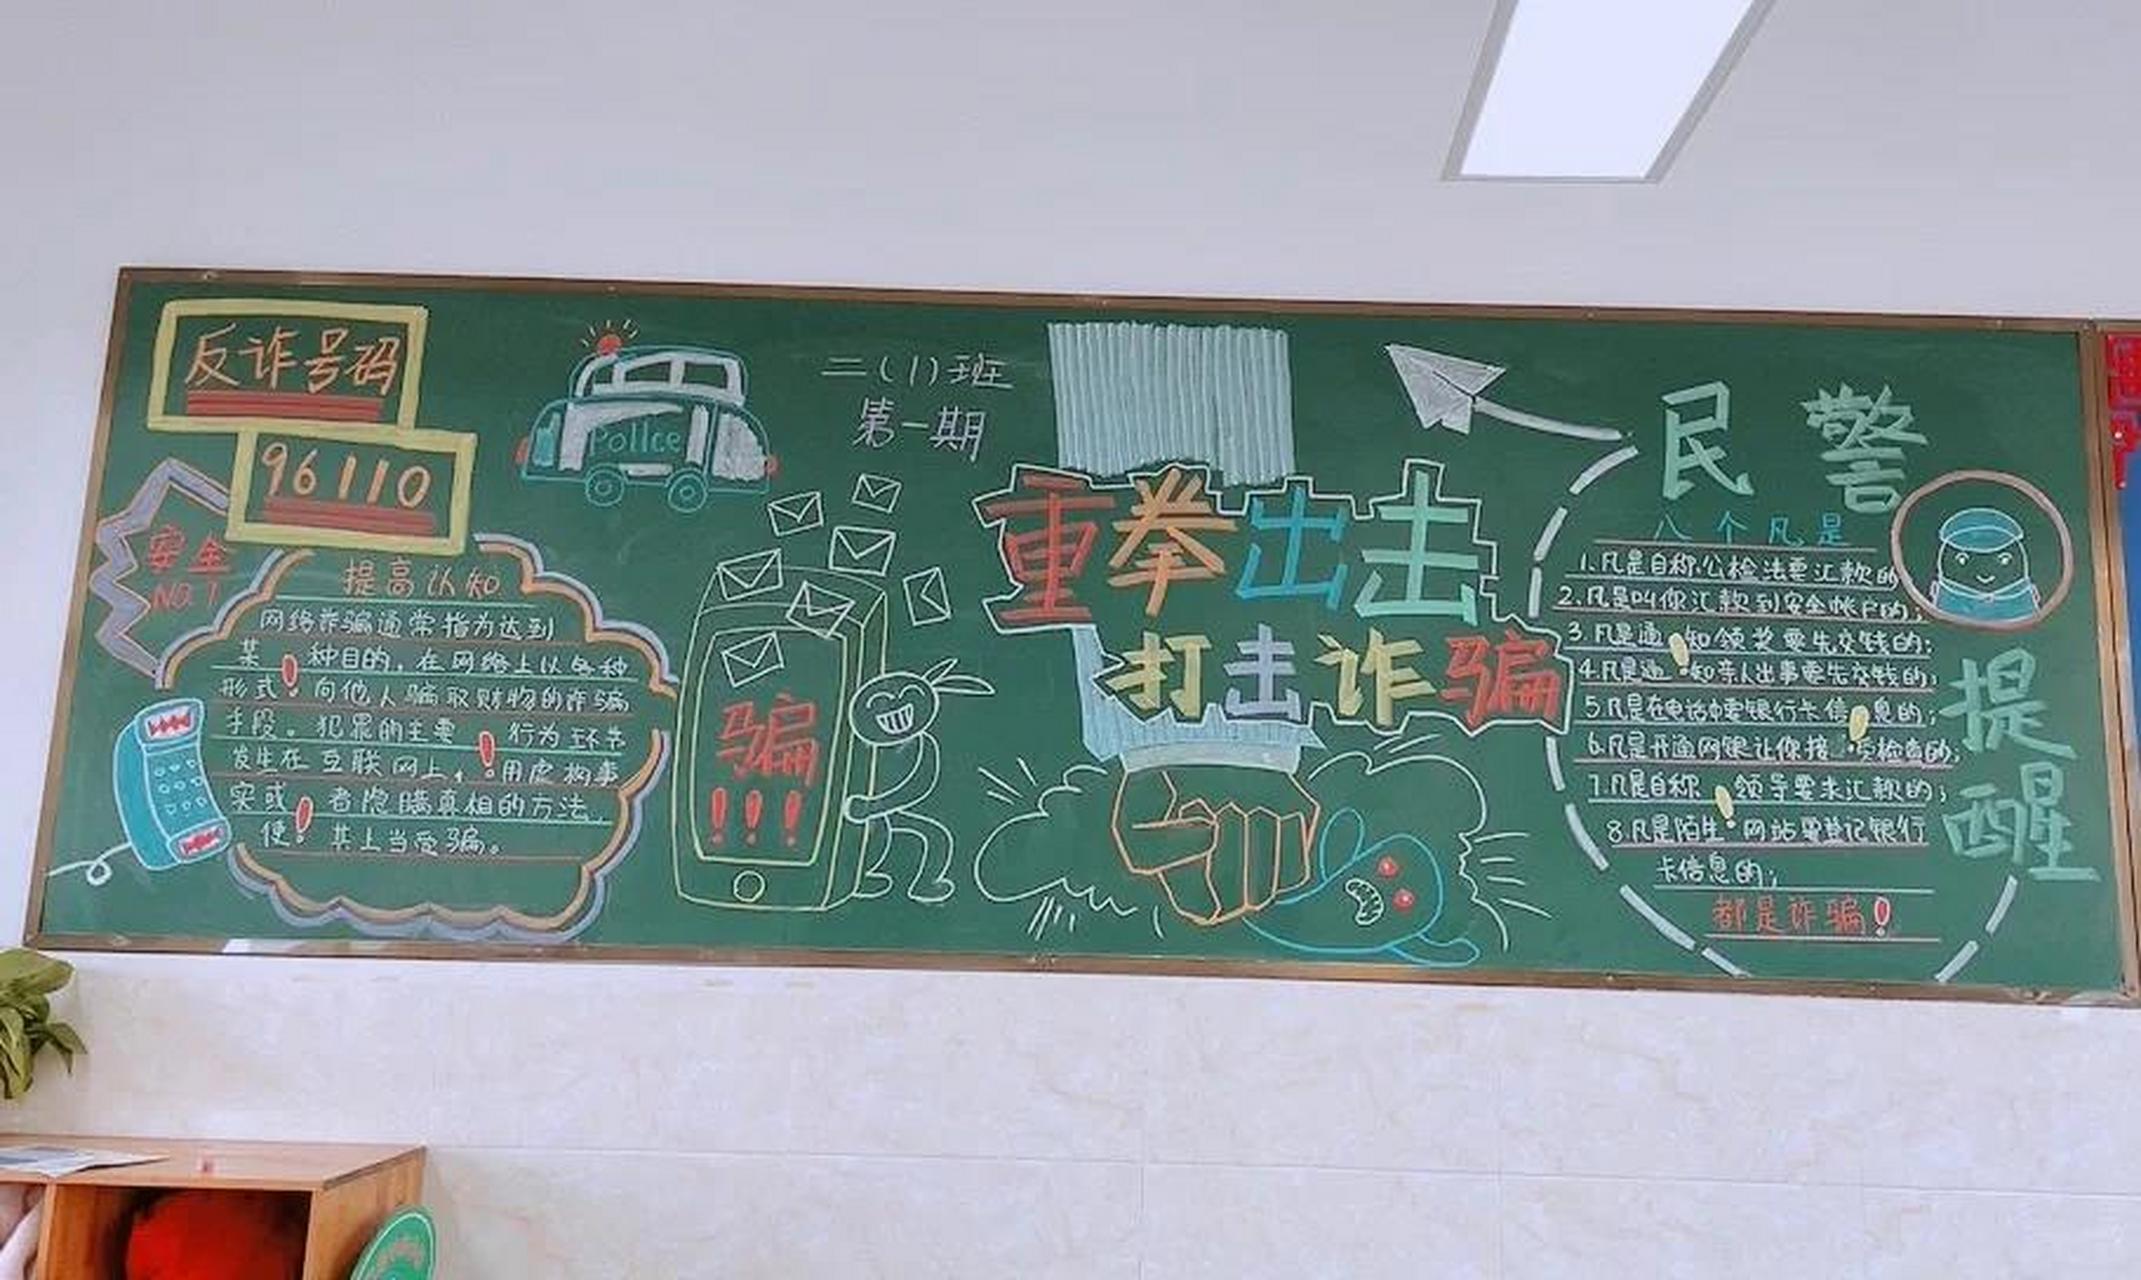 反诈号码
96110
安全
NO.1
提高认知
网络诈骗通常指为达到
某种目的，在网络上以各种
形式向他人骗取财物的诈骗
手段。犯罪的主要行为环节
发生在互联网上，用虚构事
实或者隐瞒真相的方法，
使其上当受骗。
Police
二(1)班
第一期
骗
!!!
重拳出击
打击诈骗
民警
提醒
八个凡是
1.凡是自称公检法要汇款的
2.凡是叫你汇款到安全帐户的;
3.凡是通知领奖要先交钱的;
4.凡是通知亲人出事要先交钱的;
5.凡是在电话中要银行卡信息的;
6.凡是开通网银让你接受检查的;
7.凡是自称领导要求汇款的;
8.凡是陌生网站要登记银行
卡信息的;
都是诈骗!